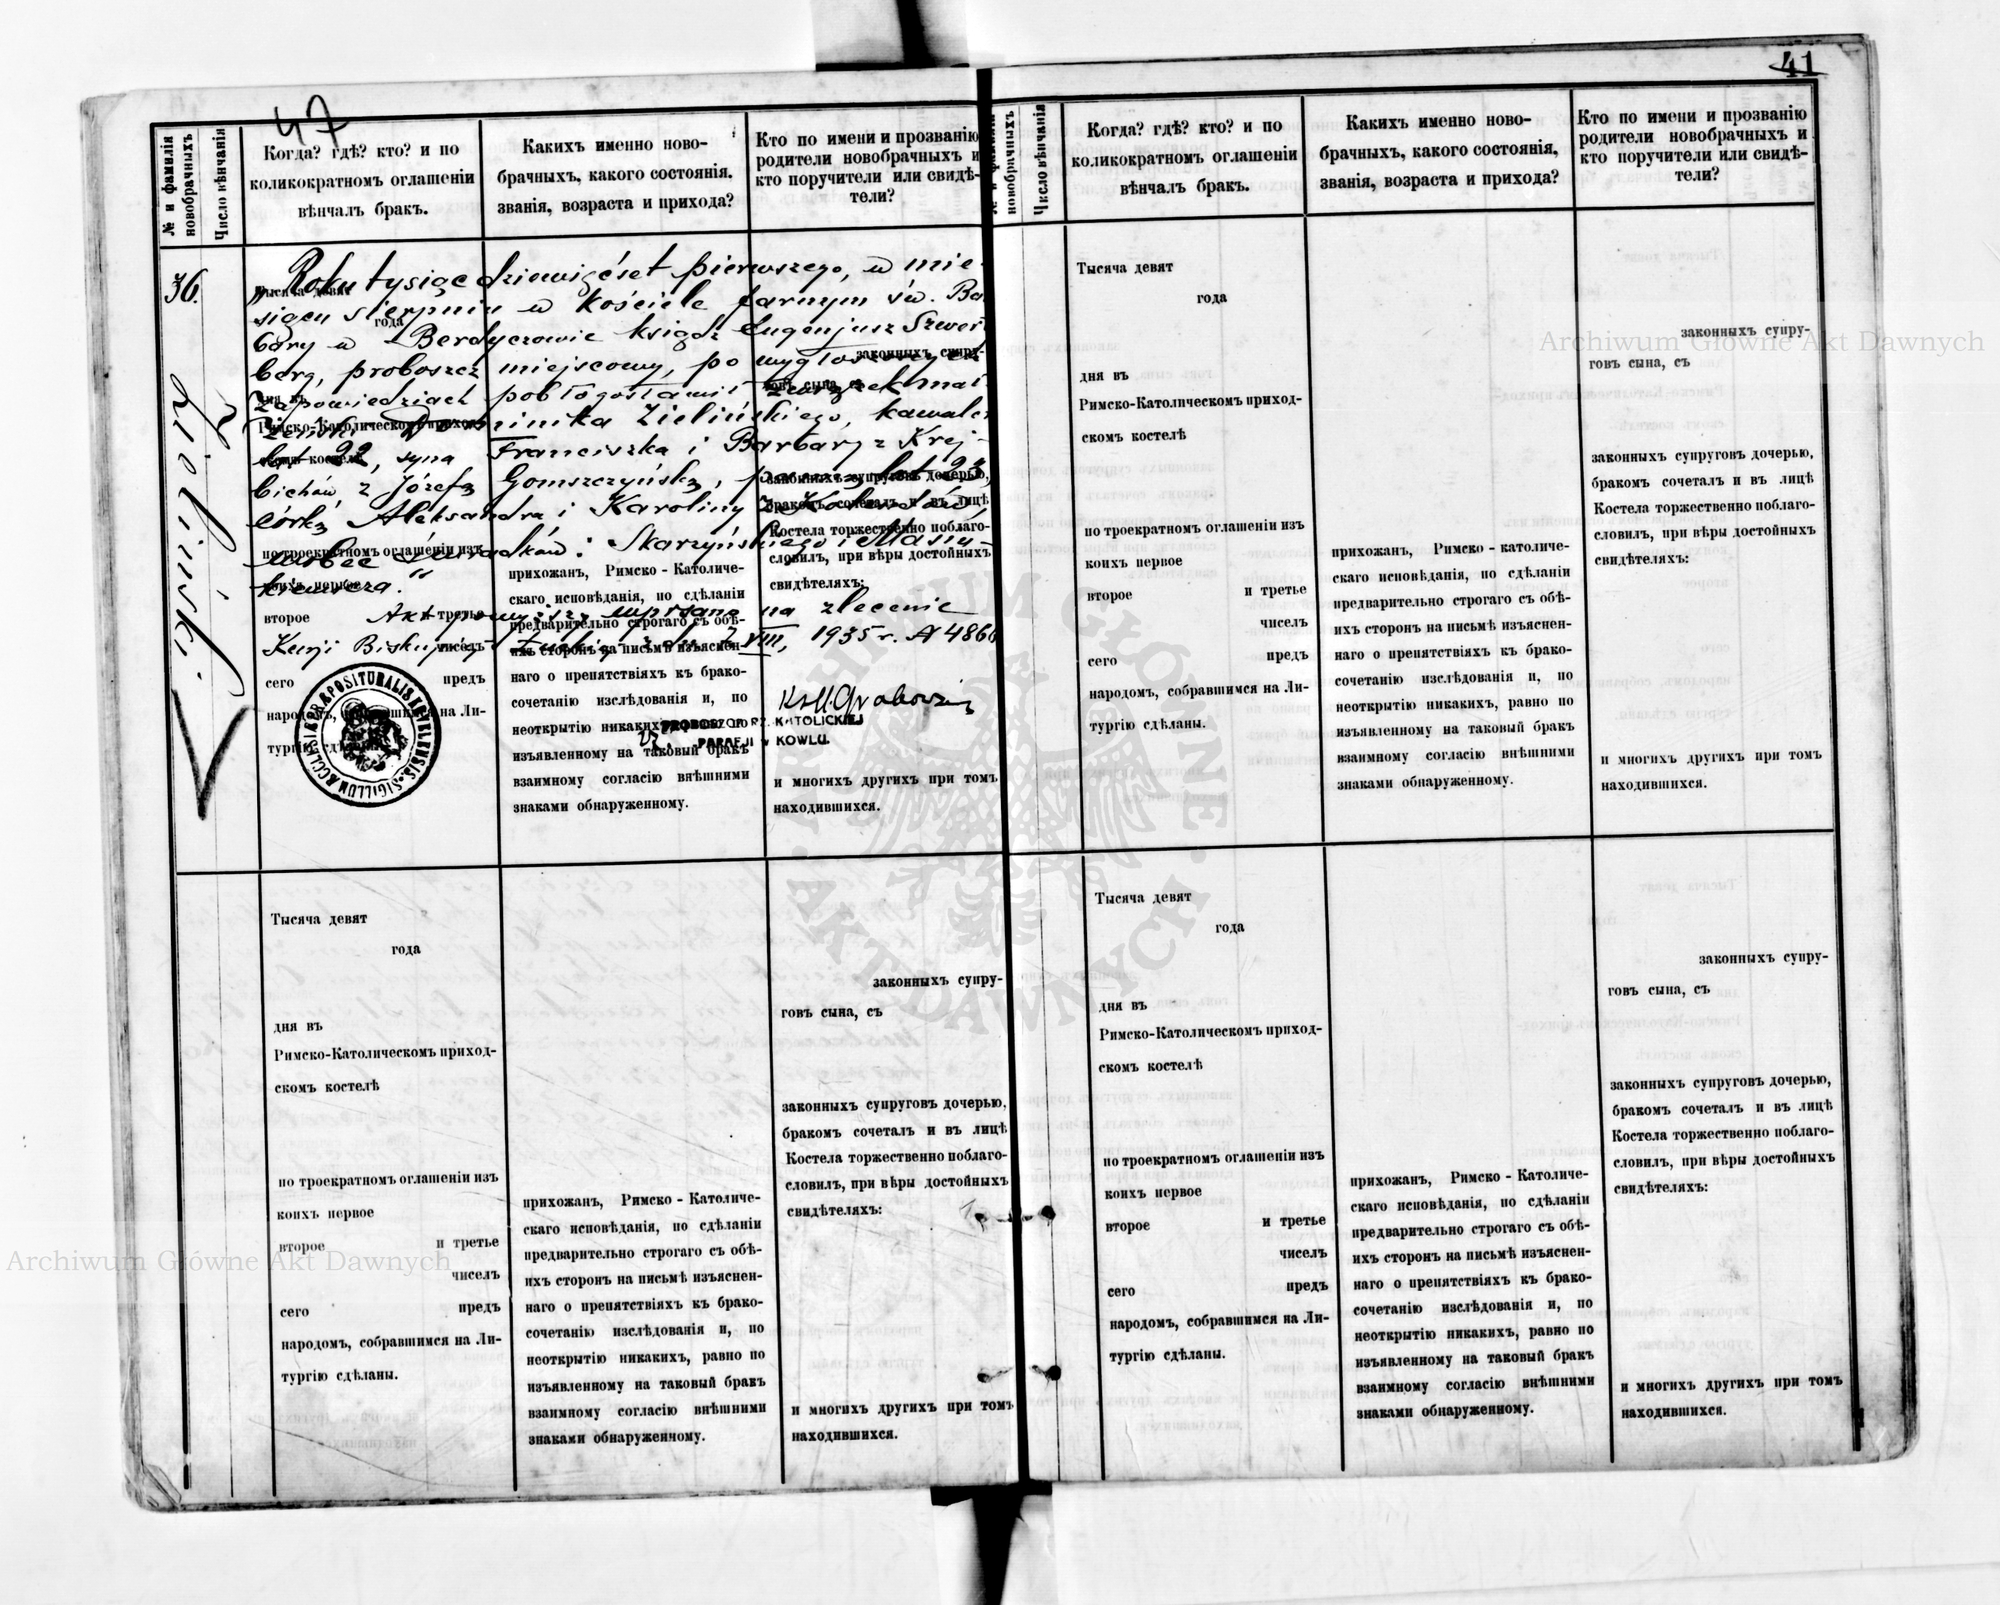 47
41
№ и фамилія новобрачныхъ
Число вѣнчанія
Когда? гдѣ? кто? и по
коликократномъ оглашеніи
вѣнчалъ бракъ.
Каких​ъ именно ново-
брачныхъ, какого состоянія.
званія, возраста и прихода?
Кто по имени и прозванію
родители новобрачныхъ и
кто поручители или свидѣ-
тели?
36.
Zieliński
„Roku tysiąc dziewięćset pierwszego, w mie-
siącu sierpniu w kościele farnym św. Ba
bary w Berdyczowie ksiądz Eugenjusz Szwer
berg, proboszcz miejscowy, po wygłoszonych
zapowiedziach pobłogosławił związek mał
żeński Dominika Zielińskiego, kawalera
lat 22, syna Franciszka i Barbary z Krej-
bichów, z Józefą Gomszczyńską, panną lat 23,
córką Aleksandra i Karoliny z
wobec świadków: Skarżyńskiego i Masiu-
kiewicza.“
Akt wpisano na zlecenie
Kurji Biskupiej Łuckiej z dn. VIII, 1935 r. № 4860
PROBOSZCZ RZ. KATOLICKIEJ
PARAFJI w KOWLU.
Тысяча девят
года
дня въ
Римско-Католическомъ приход-
скомъ костелѣ
по троекратномъ оглашеніи изъ
коихъ первое
второе и третье
чиселъ
сего предъ
народомъ, собравшимся на Ли-
тургію сдѣланы.
прихожанъ, Римско - Католиче-
скаго исповѣданія, по сдѣланіи
предварительно строгаго съ обѣ-
ихъ сторонъ на письмѣ изъяснен-
наго о препятствіяхъ къ брако-
сочетанію изслѣдованія и, по
неоткрытію никакихъ, равно по
изъявленному на таковый бракъ
взаимному согласію внѣшними
знаками обнаруженному.
законныхъ супру-
говъ сына, съ
законныхъ супруговъ дочерью,
бракомъ сочеталъ и въ лицѣ
Костела торжественно поблаго-
словилъ, при вѣры достойныхъ
свидѣтеляхъ:
и многихъ другихъ при томъ
находившихся.
Тысяча девят
года
дня въ
Римско-Католическомъ приход-
скомъ костелѣ
по троекратномъ оглашеніи изъ
коихъ первое
второе и третье
чиселъ
сего предъ
народомъ, собравшимся на Ли-
тургію сдѣланы.
прихожанъ, Римско - Католиче-
скаго исповѣданія, по сдѣланіи
предварительно строгаго съ обѣ-
ихъ сторонъ на письмѣ изъяснен-
наго о препятствіяхъ къ брако-
сочетанію изслѣдованія и, по
неоткрытію никакихъ, равно по
изъявленному на таковый бракъ
взаимному согласію внѣшними
знаками обнаруженному.
законныхъ супру-
говъ сына, съ
законныхъ супруговъ дочерью,
бракомъ сочеталъ и въ лицѣ
Костела торжественно поблаго-
словилъ, при вѣры достойныхъ
свидѣтеляхъ:
и многихъ другихъ при томъ
находившихся.
новобрачныхъ
Число вѣнчанія
Когда? гдѣ? кто? и по
коликократномъ оглашеніи
вѣнчалъ бракъ.
Каких​ъ именно ново-
брачныхъ, какого состоянія,
званія, возраста и прихода?
Кто по имени и прозванію
родители новобрачныхъ и
кто поручители или свидѣ-
тели?
Тысяча девят
года
дня въ
Римско-Католическомъ приход-
скомъ костелѣ
по троекратномъ оглашеніи изъ
коихъ первое
второе и третье
чиселъ
сего предъ
народомъ, собравшимся на Ли-
тургію сдѣланы.
прихожанъ, Римско - католиче-
скаго исповѣданія, по сдѣланіи
предварительно строгаго съ обѣ-
ихъ сторонъ на письмѣ изъяснен-
наго о препятствіяхъ къ брако-
сочетанію изслѣдованія и, по
неоткрытію никакихъ, равно по
изъявленному на таковый бракъ
взаимному согласію внѣшними
знаками обнаруженному.
законныхъ супру-
говъ сына, съ
законныхъ супруговъ дочерью,
бракомъ сочеталъ и въ лицѣ
Костела торжественно поблаго-
словилъ, при вѣры достойныхъ
свидѣтеляхъ:
и многихъ другихъ при томъ
находившихся.
Тысяча девят
года
дня въ
Римско-Католическомъ приход-
скомъ костелѣ
по троекратномъ оглашеніи изъ
коихъ первое
второе и третье
чиселъ
сего предъ
народомъ, собравшимся на Ли-
тургію сдѣланы.
прихожанъ, Римско - Католиче-
скаго исповѣданія, по сдѣланіи
предварительно строгаго съ обѣ-
ихъ сторонъ на письмѣ изъяснен-
наго о препятствіяхъ къ брако-
сочетанію изслѣдованія и, по
неоткрытію никакихъ, равно по
изъявленному на таковый бракъ
взаимному согласію внѣшними
знаками обнаруженному.
законныхъ супру-
говъ сына, съ
законныхъ супруговъ дочерью,
бракомъ сочеталъ и въ лицѣ
Костела торжественно поблаго-
словилъ, при вѣры достойныхъ
свидѣтеляхъ:
и многихъ другихъ при томъ
находившихся.
Archiwum Główne Akt Dawnych
Archiwum Główne Akt Dawnych
ARCHIWUM GŁÓWNE AKT DAWNYCH